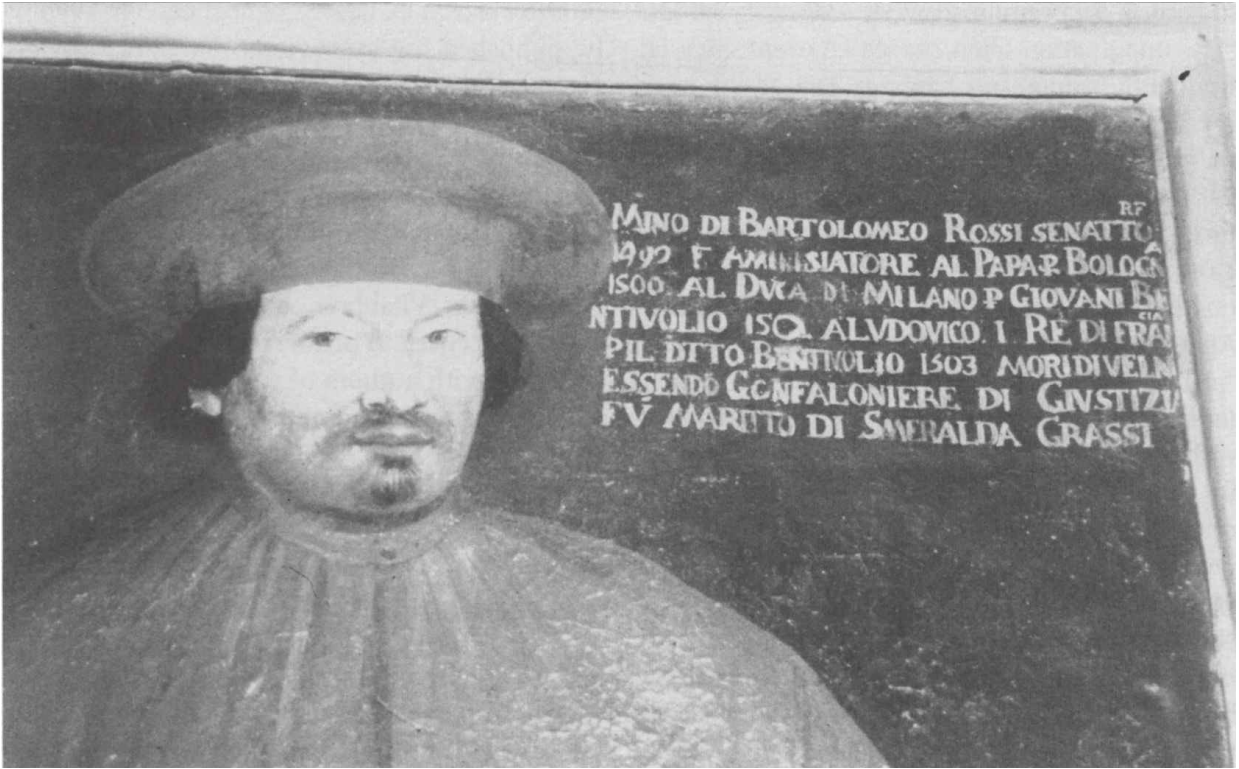 MINO DI BARTOLOMEO ROSSI SENATTO RF
1492 F AMBSIATORE AL PAPA P BOLOGNA
1500 AL DVCA DI MILANO P GIOVANI BE
NTIVOLIO 1502 ALVDOVICO. I. RE DI FRANCIA
PIL DTTO BENTIVOLIO 1503 MORI DI VELN
ESSENDO GONFALONIERE DI GIVSTIZIA
FV MARITTO DI SMERALDA GRASSI